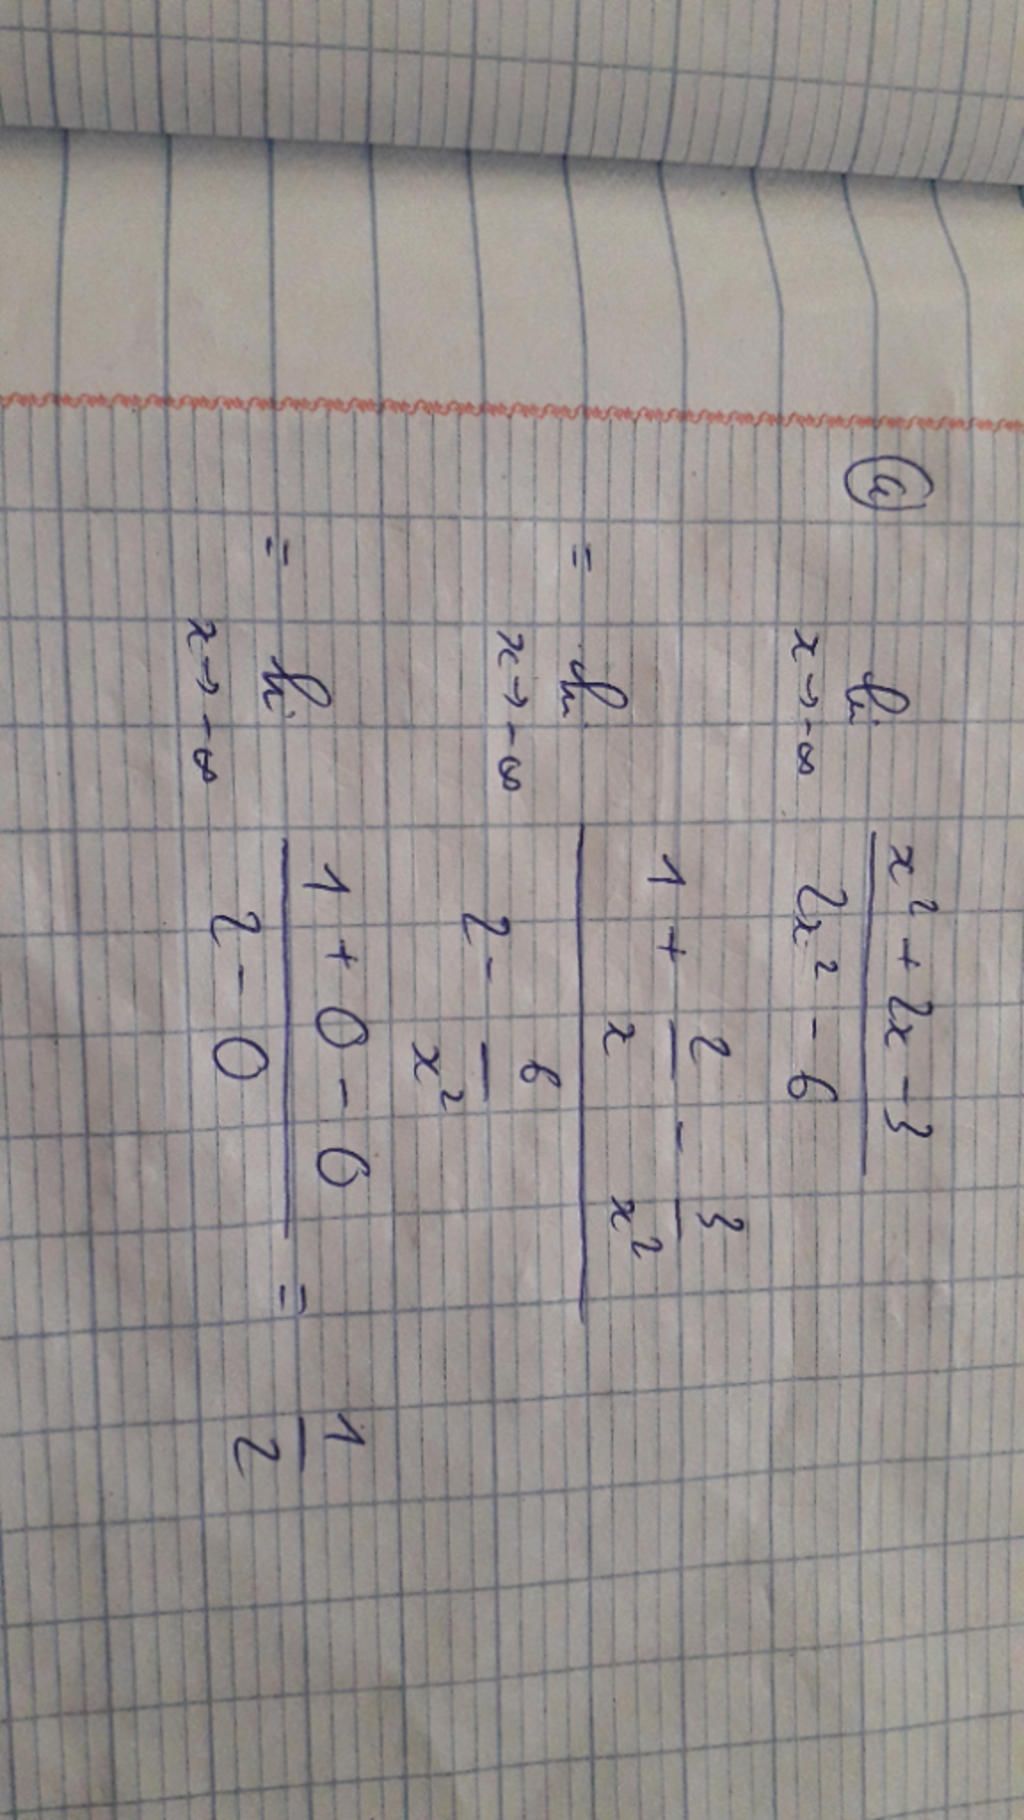 a) lim x→-∞ (x² + 2x - 3) / (2x² - 6)
= lim x→-∞ (1 + 2/x - 3/x²) / (2 - 6/x²)
= lim x→-∞ (1 + 0 - 0) / (2 - 0) = 1/2